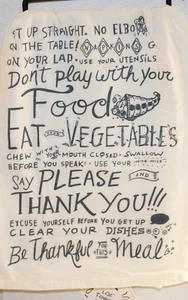 T UP STRAIGHT. NO ELBO
ON THE TABLE!
ON YOUR LAP. USE YOUR UTENSILS
Don't play with your
Food
EAT VEGETABLES
CHEW WITH YOUR MOUTH CLOSED. SWALLOW
BEFORE YOU SPEAK! USE YOUR
SAY PLEASE AND
THANK YOU!!!
EXCUSE YOURSELF BEFORE YOU GET UP
CLEAR YOUR DISHES
Be Thankful for this Meal